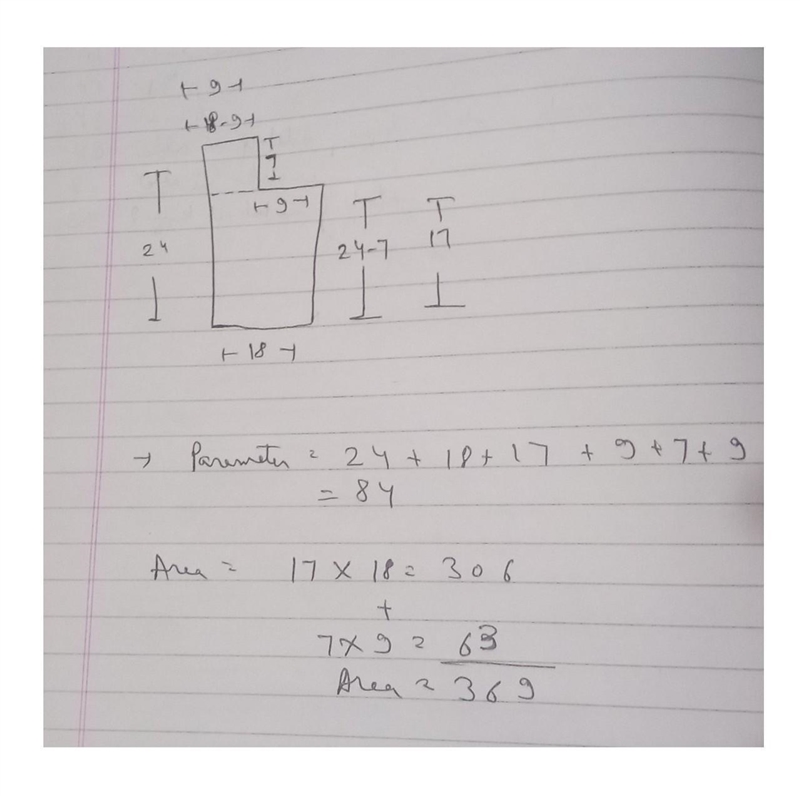 ⊢ 9 ⊣
⊢ 18-9 ⊣
7
24
⊢ 9 ⊣
24-7
17
⊢ 18 ⊣
→ Parameter = 24 + 18 + 17 + 9 + 7 + 9
= 84
Area = 17 × 18 = 306
+
7 × 9 = 63
Area = 369